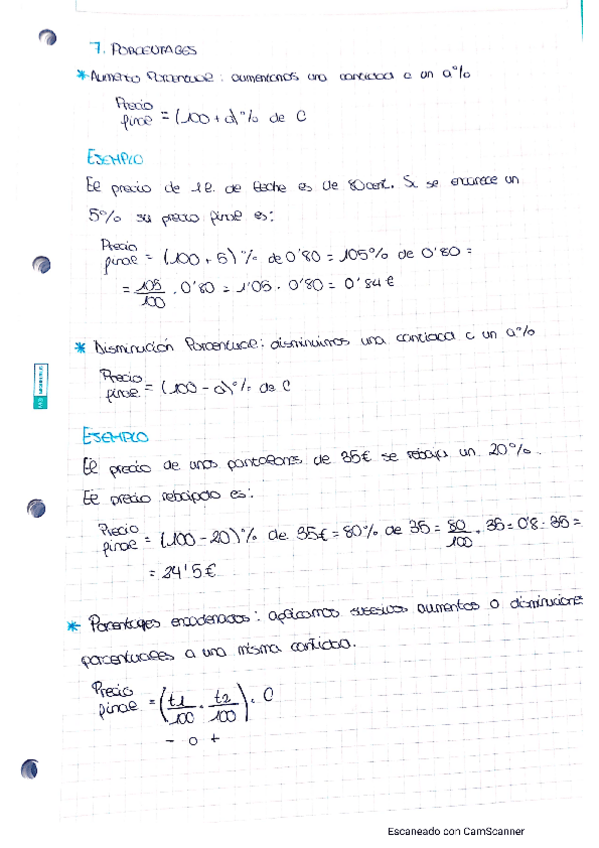 7. PORCENTAGES
* Aumento Porcentual: aumentamos una cantidad C un a%
Precio
final = (100 + a)% de C
EJEMPLO
El precio de 1l. de leche es de 80cent. Si se encarece un
5% su precio final es:
Precio
final = (100 + 5)% de 0'80 = 105% de 0'80 =
= 105/100 · 0'80 = 1'05 · 0'80 = 0'84€
* Disminución Porcentual: disminuimos una cantidad C un a%
Precio
final = (100 - a)% de C
EJEMPLO
El precio de unos pantalones de 35€ se rebaja un 20%.
El precio rebajado es:
Precio
final = (100 - 20)% de 35€ = 80% de 35 = 80/100 · 35 = 0'8 · 35 =
= 24'5€
* Porcentajes encadenados: aplicamos sucesivos aumentos o disminuciones
porcentuales a una misma cantidad.
Precio
final = (t1/100 · t2/100) · C
- o +
Escaneado con CamScanner